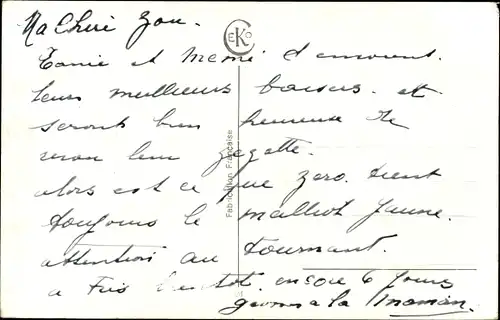 Ma Cheri Zou.
CEKO
Tanie et Mémé t'envoient
leurs meilleurs baisers. et
seront bien heureuse de
revoir leur zezette.
alors est ce que zero. tient
toujours le maillot jaune.
attention au tournant.
a tres bientot. encore 6 jours
a la maman.
Fabrication Française